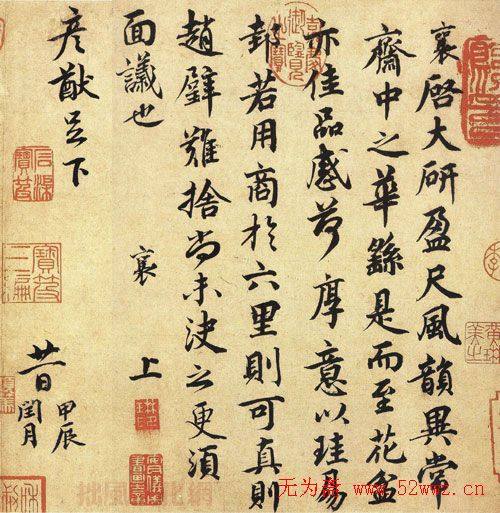 襄啓大研盈尺風韻異常
齋中之華繇是而至花盆
亦佳品感荷厚意以珪易
邽若用商於六里則可真則
趙璧難捨尚未決之更須
面議也 襄 上
彥猷足下
廿一日 甲辰
閏月
www.52wwz.cn